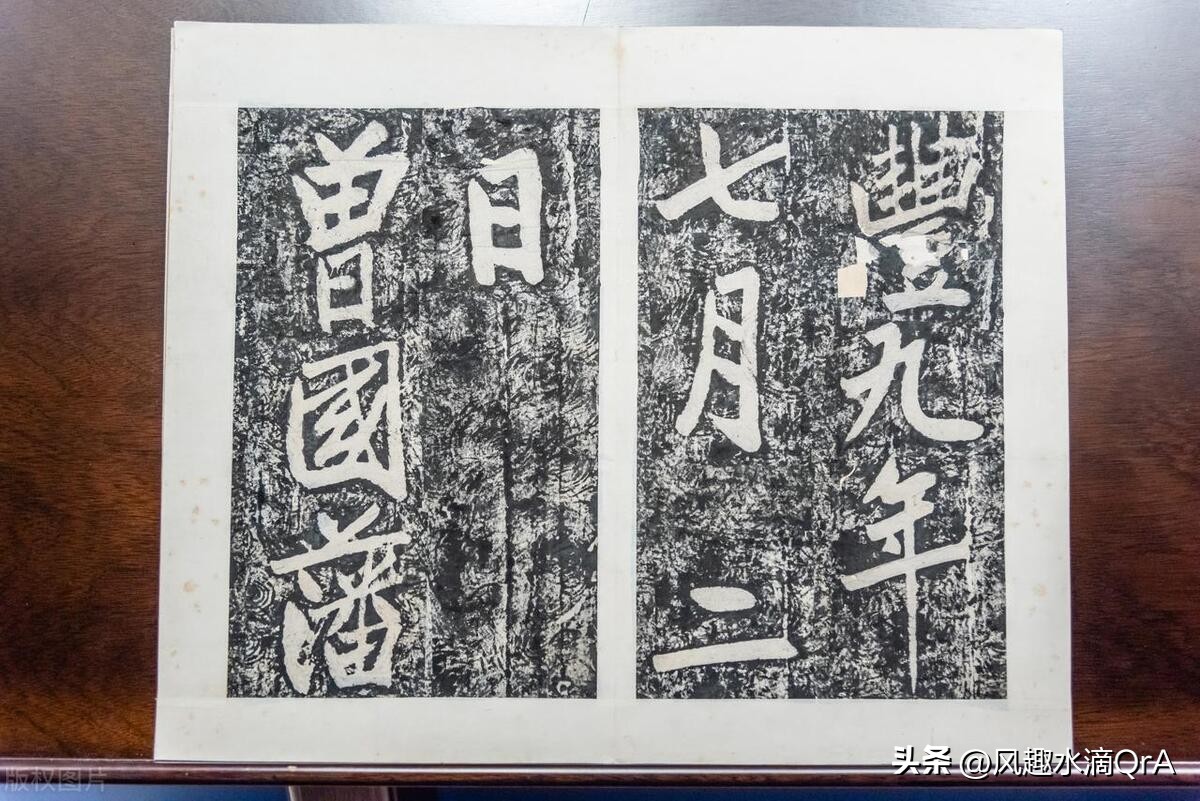 豐九年
七月二
日
曾國藩
头条 @风趣水滴QrA
版权图片